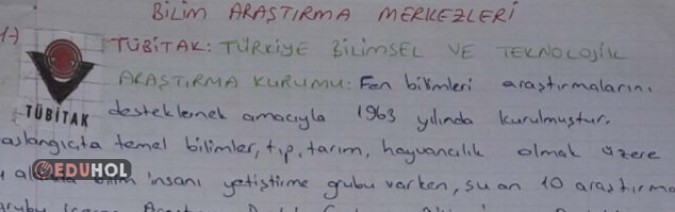 BİLİM ARAŞTIRMA MERKEZLERİ
1-) TÜBİTAK: TÜRKİYE BİLİMSEL VE TEKNOLOJİK
ARAŞTIRMA KURUMU: Fen bilimleri araştırmalarını
TÜBİTAK desteklemek amacıyla 1963 yılında kurulmuştur.
aşlangıçta temel bilimler, tıp, tarım, hayvancılık olmak üzere
EDUHOL insanı yetiştirme grubu varken, şu an 10 araştırma